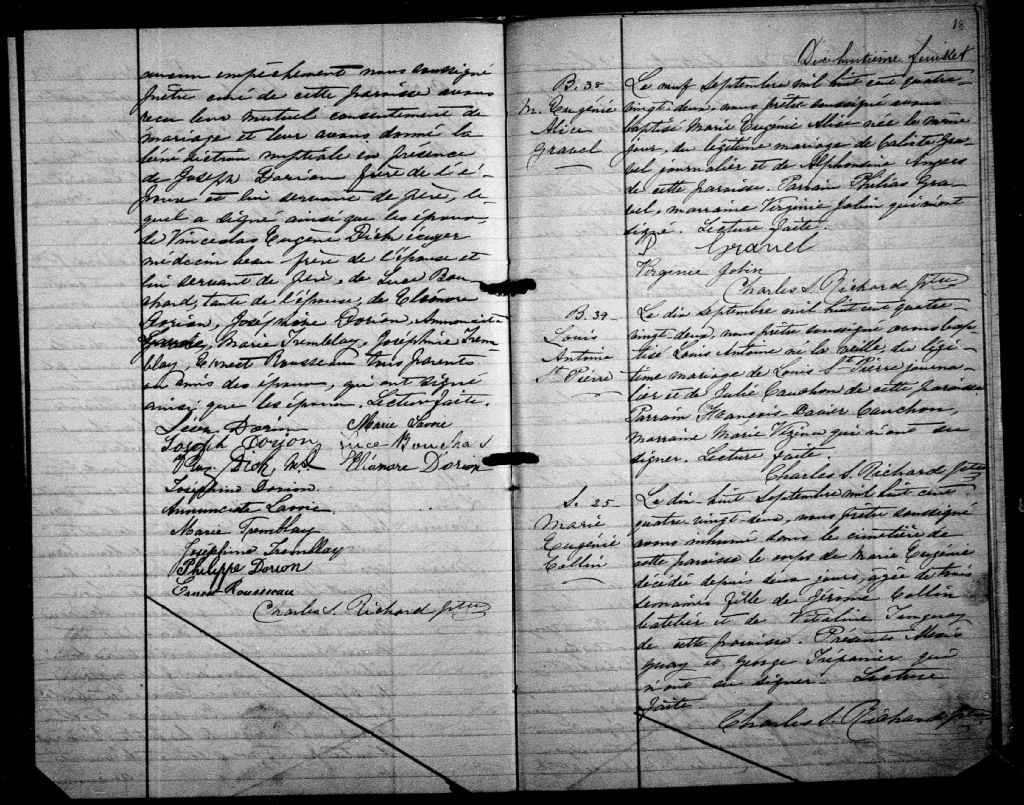 aucun empêchement nous soussigné
prêtre curé de cette paroisse avons
reçu leur mutuel consentement de
mariage et leur avons donné la
bénédiction nuptiale en présence
de Joseph Dorion frère de l'é-
poux et lui servant de père, le-
quel a signé ainsi que les époux,
de Vinceslas Eugène Dick écuyer
médecin beau-frère de l'épouse et
lui servant de père, de Luce Bou
chard, tante de l'épouse, de Eléonore
Dorion, Joséphine Dorion, Annonciate
Marie Tremblay, Josephine Trem
blay, Ernest Rousseau tous parents
ou amis des époux, qui ont signé
ainsi que les époux. Lecture faite.
Dorion Marie Savoie
Joseph Doryon, Luce Boucha
Dick, Eléanore Dorion
Joséphine Dorion.
Annonciate Savoie
Marie Tremblay
Joséphine Tremblay
Philippe Dorion
Ernest Rousseau
Charles S. Richard Ptre
18
Dix huitième feuillet
B. 38
M. Eugénie
Alice
Gravel
Le neuf Septembre mil huit cent quatre
vingt-deux, nous prêtre soussigné avons
baptisé Marie Eugénie Alice née le même
jour, du légitime mariage de Calixte Gra-
vel journalier et de Alphonsine Angers
de cette paroisse. Parrain Philias Gra-
vel, marraine Virginie Jobin qui ont
signé. Lecture faite.
P Gravel
Virginie Jobin
Charles S. Richard Ptre
B. 39
Louis
Antoine
St Pierre
Le dix septembre mil huit cent quatre
vingt-deux, nous prêtre soussigné avons bap
tisé Louis Antoine né la veille du légi-
time mariage de Louis St Pierre journa-
lier et de Julie Cauchon de cette paroisse
Parrain François Xavier Cauchon,
marraine Marie Vézina qui n'ont su
signer. Lecture faite.
Charles S. Richard Ptre
S. 25
Marie
Eugénie
Collin
Le dix-huit Septembre mil huit cent
quatre vingt-deux, nous prêtre soussigné
avons inhumé dans le cimetière de
cette paroisse le corps de Marie Eugénie
décédée depuis deux jours, agée de trois
semaines fille de Jérôme Collin
batelier et de Vitaline Tanguay
de cette paroisse. Présents
et George Trépanier qui
n'ont su signer. Lecture
faite
Charles S. Richard Ptre